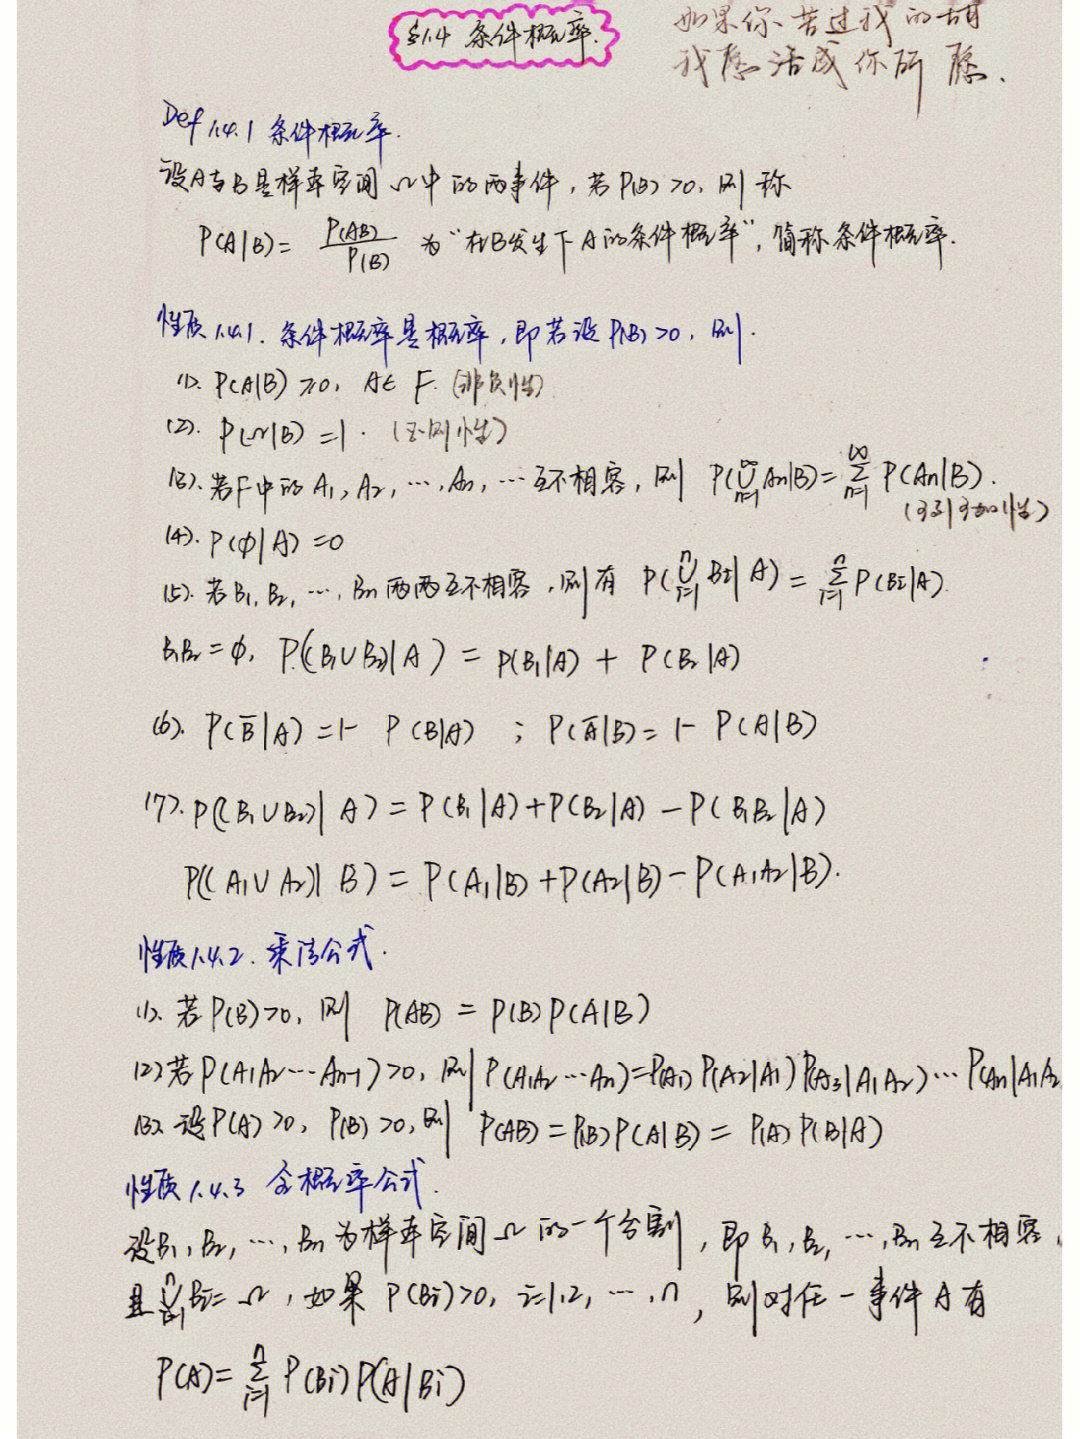 §1.4 条件概率.
如果你苦过我的苦
我愿活成你所愿.
Def 1.4.1 条件概率.
设A与B是样本空间Ω中的两事件, 若P(B)>0, 则称
P(A|B)= P(AB)/P(B) 为“在B发生下A的条件概率”, 简称条件概率.
性质1.4.1. 条件概率是概率, 即若设P(B)>0, 则.
(1). P(A|B)≥0, A∈F. (非负性)
(2). P(Ω|B)=1. (正则性)
(3). 若F中的A₁, A₂, …, An, …互不相容, 则 P(⋃_{n=1}^∞ An|B)=∑_{n=1}^∞ P(An|B).
(可列可加性)
(4). P(∅|A)=0
(5). 若B₁, B₂, …, Bn两两互不相容, 则有 P(⋃_{i=1}^n Bi|A)=∑_{i=1}^n P(Bi|A).
B₁B₂=∅, P((B₁∪B₂)|A)=P(B₁|A)+P(B₂|A)
(6). P(B̄|A)=1-P(B|A) ; P(Ā|B)=1-P(A|B)
(7). P((B₁∪B₂)|A)=P(B₁|A)+P(B₂|A)-P(B₁B₂|A)
P((A₁∪A₂)|B)=P(A₁|B)+P(A₂|B)-P(A₁A₂|B).
性质1.4.2. 乘法公式.
(1). 若P(B)>0, 则 P(AB)=P(B)P(A|B)
(2) 若P(A₁A₂…An-1)>0, 则P(A₁A₂…An)=P(A₁)P(A₂|A₁)P(A₃|A₁A₂)…P(An|A₁A₂
(3). 设P(A)>0, P(B)>0, 则 P(AB)=P(B)P(A|B)=P(A)P(B|A)
性质1.4.3 全概率公式.
设B₁, B₂, …, Bn为样本空间Ω的一个分割, 即B₁, B₂, …, Bn互不相容,
且⋃_{i=1}^n Bi=Ω, 如果P(Bi)>0, i=1,2,…,n, 则对任一事件A有
P(A)=∑_{i=1}^n P(Bi)P(A|Bi)